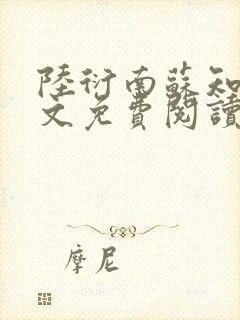 陸衍南蘇知
文免費閱讀
摩尼